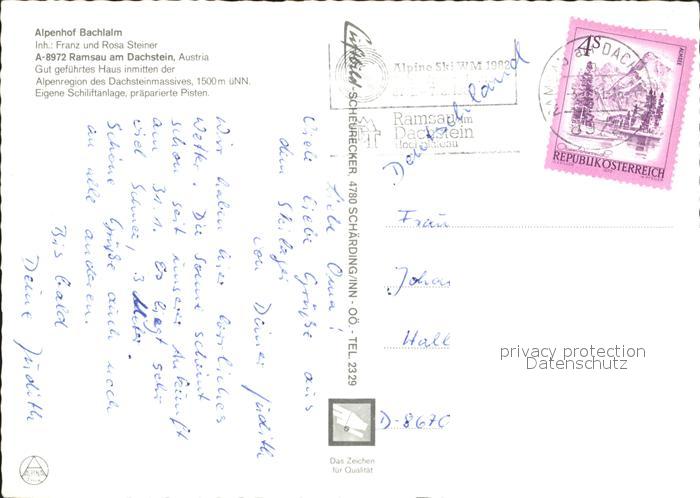 Alpenhof Bachlalm
Inh.: Franz und Rosa Steiner
A-8972 Ramsau am Dachstein, Austria
Gut geführtes Haus inmitten der
Alpenregion des Dachsteinmassives, 1500 m üNN.
Eigene Schiliftanlage, präparierte Pisten.
Liebe Oma!
Viele liebe Grüße aus
dem Skilager
von Deiner Judith
Wir haben hier herrliches
Wetter. Die Sonne scheint
schon seit unserer Ankunft
am 31.1. Es liegt sehr
viel Schnee! 3 Meter.
Schöne Grüße auch noch
an alle anderen.
Bis bald
Deine Judith
Luftbild-SCHEURECKER, 4780 SCHÄRDING/INN - OÖ. - TEL. 2329
Alpine Ski WM 1982
Ramsau am
Dachstein
4S
ALMSEE
REPUBLIK ÖSTERREICH
Deutschland
Frau
Johan
Hall
D-8670
privacy protection
Datenschutz
Das Zeichen
für Qualität